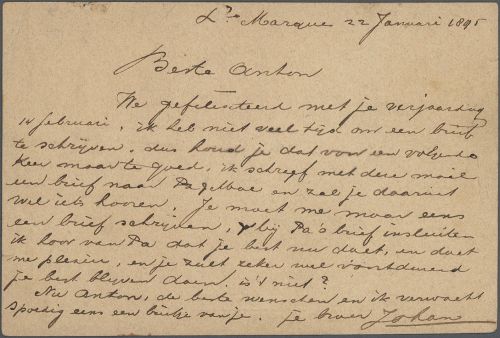 St. Marque 22 Januari 1895
Beste Anton
Wel gefeliciteerd met je verjaardag
14 februari, ik heb niet veel tijd om een brief
te schrijven, dus houd je dat voor een volgende
keer maar te goed, ik schreef met deze mail
een brief naar en zal je daaruit
wel iets hooren. Je moet me maar eens
een brief schrijven, & bij Pa's brief insluiten
ik hoor van Pa dat je best nu doet, en doet
me plezier, en je zult zeker wel voortdurend
je best blijven doen. is 't niet?
Nu Anton, de beste wenschen en ik verwacht
spoedig eens een briefje van je. je broer Johan